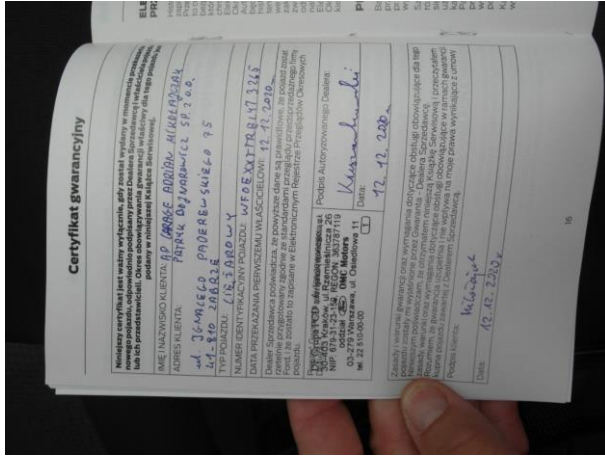 Certyfikat gwarancyjny
Niniejszy certyfikat jest ważny wyłącznie, gdy został wydany w momencie przekazania
nowego pojazdu, odpowiednio podpisany przez Dealera Sprzedawcę i właściciela pojazdu
lub ich przedstawicieli. Okres obowiązywania gwarancji właściwy dla tego pojazdu jest
podany w niniejszej Książce Serwisowej.
IMIĘ I NAZWISKO KLIENTA: AP GARAGE ADRIAN MIKOŁAJCZAK
PATRYK SP. Z O.O.
ADRES KLIENTA:
ul. IGNACEGO PADEREWSKIEGO 75
41-810 ZABRZE
TYP POJAZDU: CIĘŻAROWY
NUMER IDENTYFIKACYJNY POJAZDU:
DATA PRZEKAZANIA PIERWSZEMU WŁAŚCICIELOWI: 12.12.2020
Dealer Sprzedawca poświadcza, że powyższe dane są prawidłowe, że pojazd został
rzetelnie przygotowany zgodnie ze standardami przeglądu przedsprzedażnego firmy
Ford, i że zostało to zapisane w Elektronicznym Rejestrze Przeglądów Okresowych
pojazdu.
Podpis Autoryzowanego Dealera:
30-403 Kraków, ul. Rzemieślnicza 26
NIP 679-31-23-159, REGON 363787119
oddział OMC Motors
03-279 Warszawa, ul. Osiedlowa 11
tel. 22 510-00-00
1
Data:
12.12.2020
Zasady, warunki gwarancji oraz wymagania dotyczące obsługi obowiązujące dla tego
pojazdu zostały mi przedstawione przez Gwaranta - Dealera Sprzedawcę.
Niniejszym poświadczam, że otrzymałem niniejszą Książkę Serwisową i przeczytałem
zasady, warunki oraz wymagania dotyczące obsługi obowiązujące w ramach gwarancji.
Rozumiem, że gwarancja ta uzupełnia i nie wpływa na moje prawa wynikające z umowy
kupna pojazdu zawartej z Dealerem Sprzedawcą.
Podpis klienta:
Data:
12.12.2020r
16